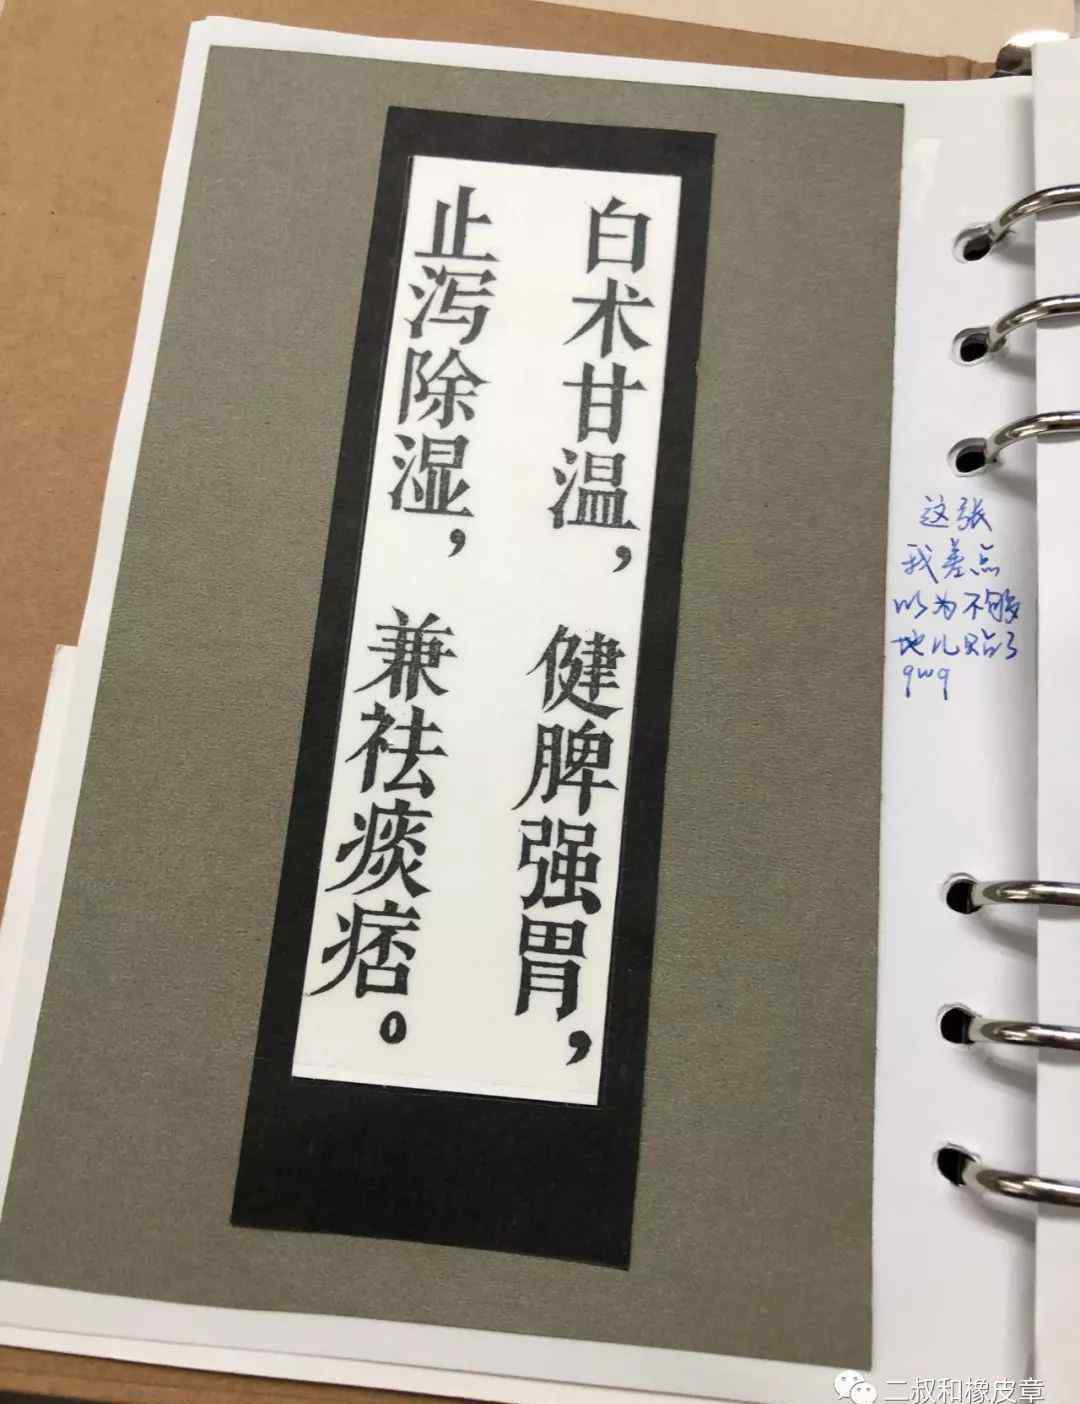 白术甘温，健脾强胃，
止泻除湿，兼祛痰痞。
这张
我差点
以为不够
地儿贴了
qwq
二叔和橡皮章